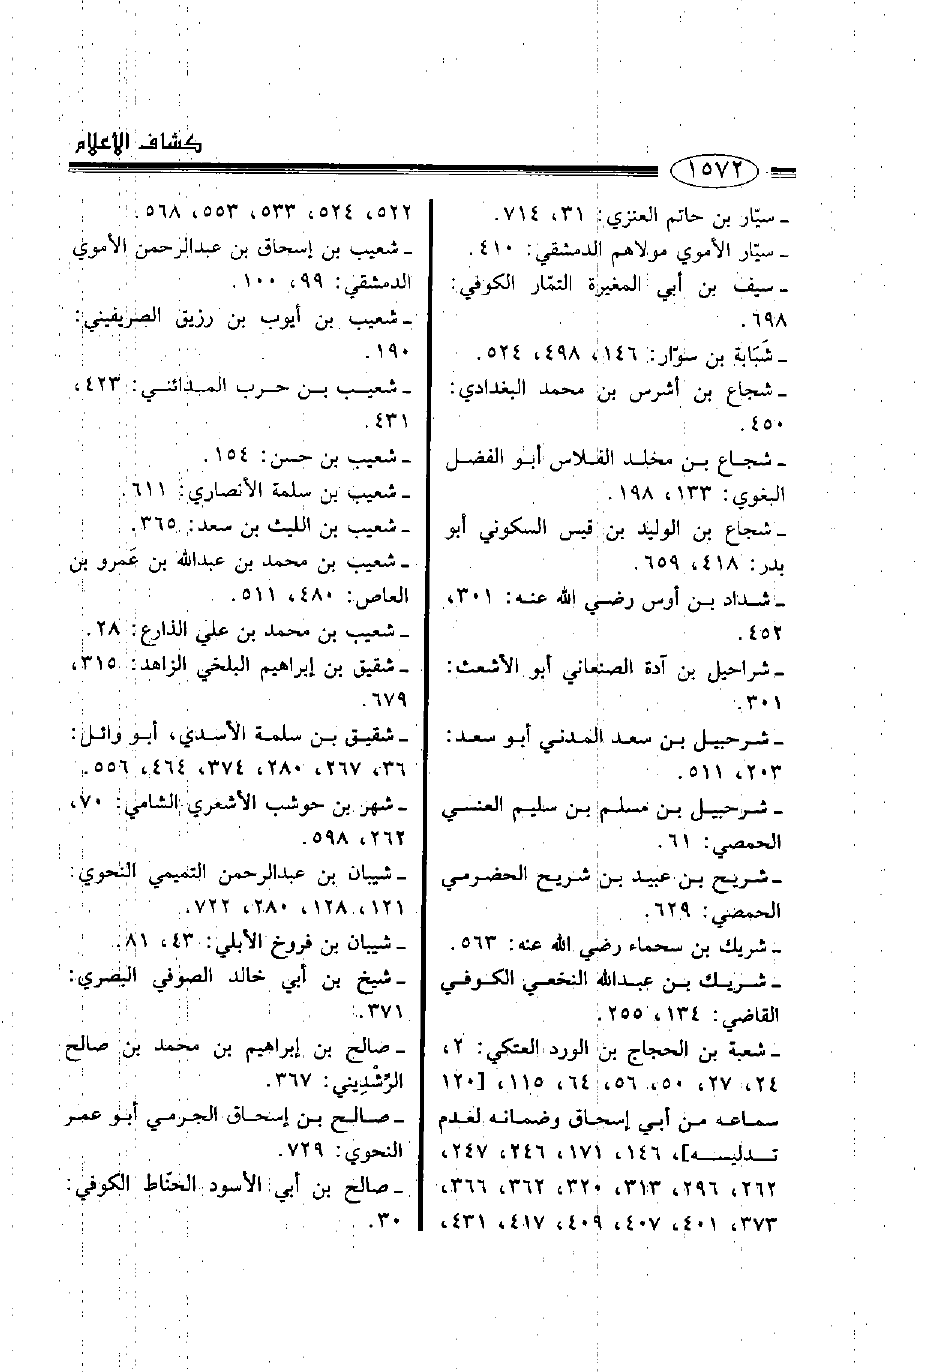 كشاف الأعلام
١٥٧٢
ـ سيّار بن حاتم العنزي: ٣١، ٧١٤.
ـ سيّار الأموي مولاهم الدمشقي: ٤١٠.
ـ سيف بن أبي المغيرة التمّار الكوفي:
٦٩٨.
ـ شَبَابة بن سوّار: ١٤٦، ٤٩٨، ٥٢٤.
ـ شجاع بن أشرس بن محمد البغدادي:
٤٥٠.
ـ شجاع بن مخلد الفلاس أبو الفضل
البغوي: ١٣٣، ١٩٨.
ـ شجاع بن الوليد بن قيس السكوني أبو
بدر: ٤١٨، ٦٥٩.
ـ شداد بن أوس رضي الله عنه: ٣٠١،
٤٥٢.
ـ شراحيل بن آدة الصنعاني أبو الأشعث:
٣٠١.
ـ شرحبيل بن سعد المدني أبو سعد:
٢٠٣، ٥١١.
ـ شرحبيل بن مسلم بن سليم العنسي
الحمصي: ٦١.
ـ شريح بن عبيد بن شريح الحضرمي
الحمصي: ٦٢٩.
ـ شريك بن سحماء رضي الله عنه: ٥٦٣.
ـ شريك بن عبدالله النخعي الكوفي
القاضي: ١٣٤، ٢٥٥.
ـ شعبة بن الحجاج بن الورد العتكي: ٢،
٢٤، ٢٧، ٥٠، ٥٦، ٦٤، ١١٥، [١٢٠
سماعه من أبي إسحاق وضمانه لعدم
تدليسه]، ١٤٦، ١٧١، ٢٤٦، ٢٤٧،
٢٦٢، ٢٩٦، ٣١٣، ٣٢٠، ٣٦٢، ٣٦٦،
٣٧٣، ٤٠١، ٤٠٧، ٤٠٩، ٤١٧، ٤٣١،
٥٢٢، ٥٢٤، ٥٣٣، ٥٥٣، ٥٦٨.
ـ شعيب بن إسحاق بن عبدالرحمن الأموي
الدمشقي: ٩٩، ١٠٠.
ـ شعيب بن أيوب بن رزيق الصريفيني:
١٩٠.
ـ شعيب بن حرب المدائني: ٤٢٣،
٤٣١.
ـ شعيب بن حسن: ١٥٤.
ـ شعيب بن سلمة الأنصاري: ٦١١.
ـ شعيب بن الليث بن سعد: ٣٦٥.
ـ شعيب بن محمد بن عبدالله بن عَمرو بن
العاص: ٤٨٠، ٥١١.
ـ شعيب بن محمد بن علي الذارع: ٢٨.
ـ شقيق بن إبراهيم البلخي الزاهد: ٣١٥،
٦٧٩.
ـ شقيق بن سلمة الأسدي، أبو وائل:
٣٦، ٢٦٧، ٢٨٠، ٣٧٤، ٤٦٤، ٥٥٦.
ـ شهر بن حوشب الأشعري الشامي: ٧٠،
٢٦٢، ٥٩٨.
ـ شيبان بن عبدالرحمن التميمي النحوي:
١٢١، ١٢٨، ٢٨٠، ٧٢٢.
ـ شيبان بن فروخ الأبلي: ٤٣، ٨١.
ـ شيخ بن أبي خالد الصوفي البصري:
٣٧١.
ـ صالح بن إبراهيم بن محمد بن صالح
الرَّشْدِيني: ٣٦٧.
ـ صالح بن إسحاق الجرمي أبو عمر
النحوي: ٧٢٩.
ـ صالح بن أبي الأسود الحنّاط الكوفي:
٣٠.